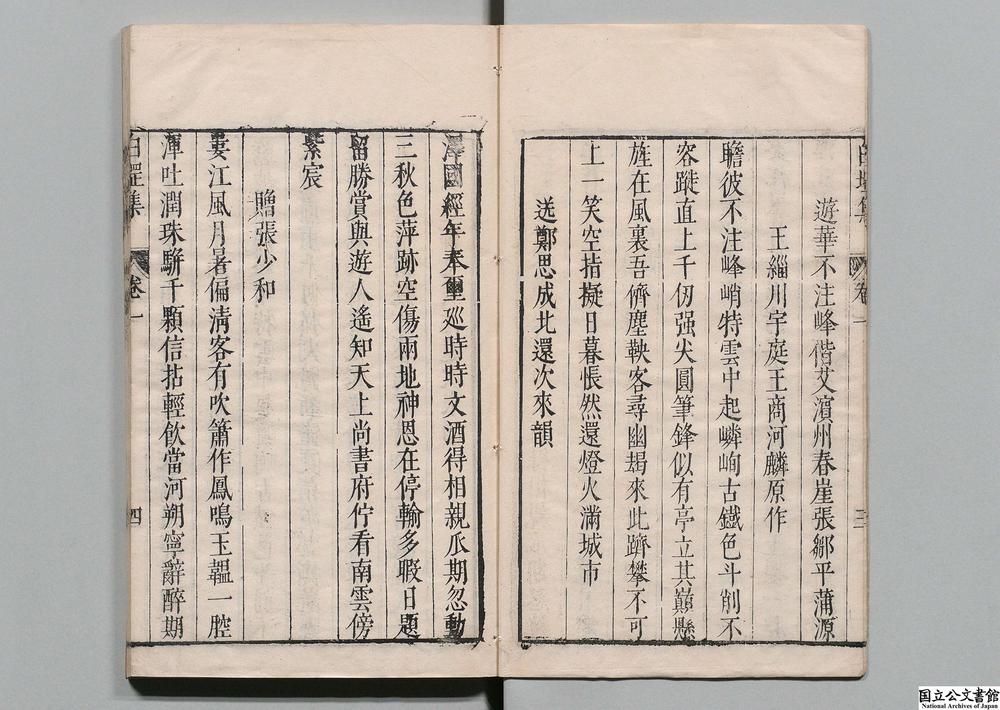 遊華不注峰偕艾濱州春崖張鄒平蒲源
王緇川宇庭王商河麟原作
瞻彼不注峰峭特雲中起嶙峋古鐵色斗削不
容蹝直上千仞强尖圓筆鋒似有亭立其巔懸
旌在風裏吾儕塵鞅客尋幽朅來此躋攀不可
上一笑空指擬日暮悵然還燈火滿城市
送鄭思成北還次來韻
三
澤國經年奉璽廵時時文酒得相親瓜期忽動
三秋色萍跡空傷兩地神恩在停輪多暇日題
留勝賞與遊人遙知天上尚書府佇看南雲傍
紫宸
贈張少和
婁江風月暑偏淸客有吹簫作鳳鳴玉韞一腔
渾吐潤珠駢千顆信拈輕飲當河朔寧辭醉期
集 卷一 四
国立公文書館
National Archives of Japan